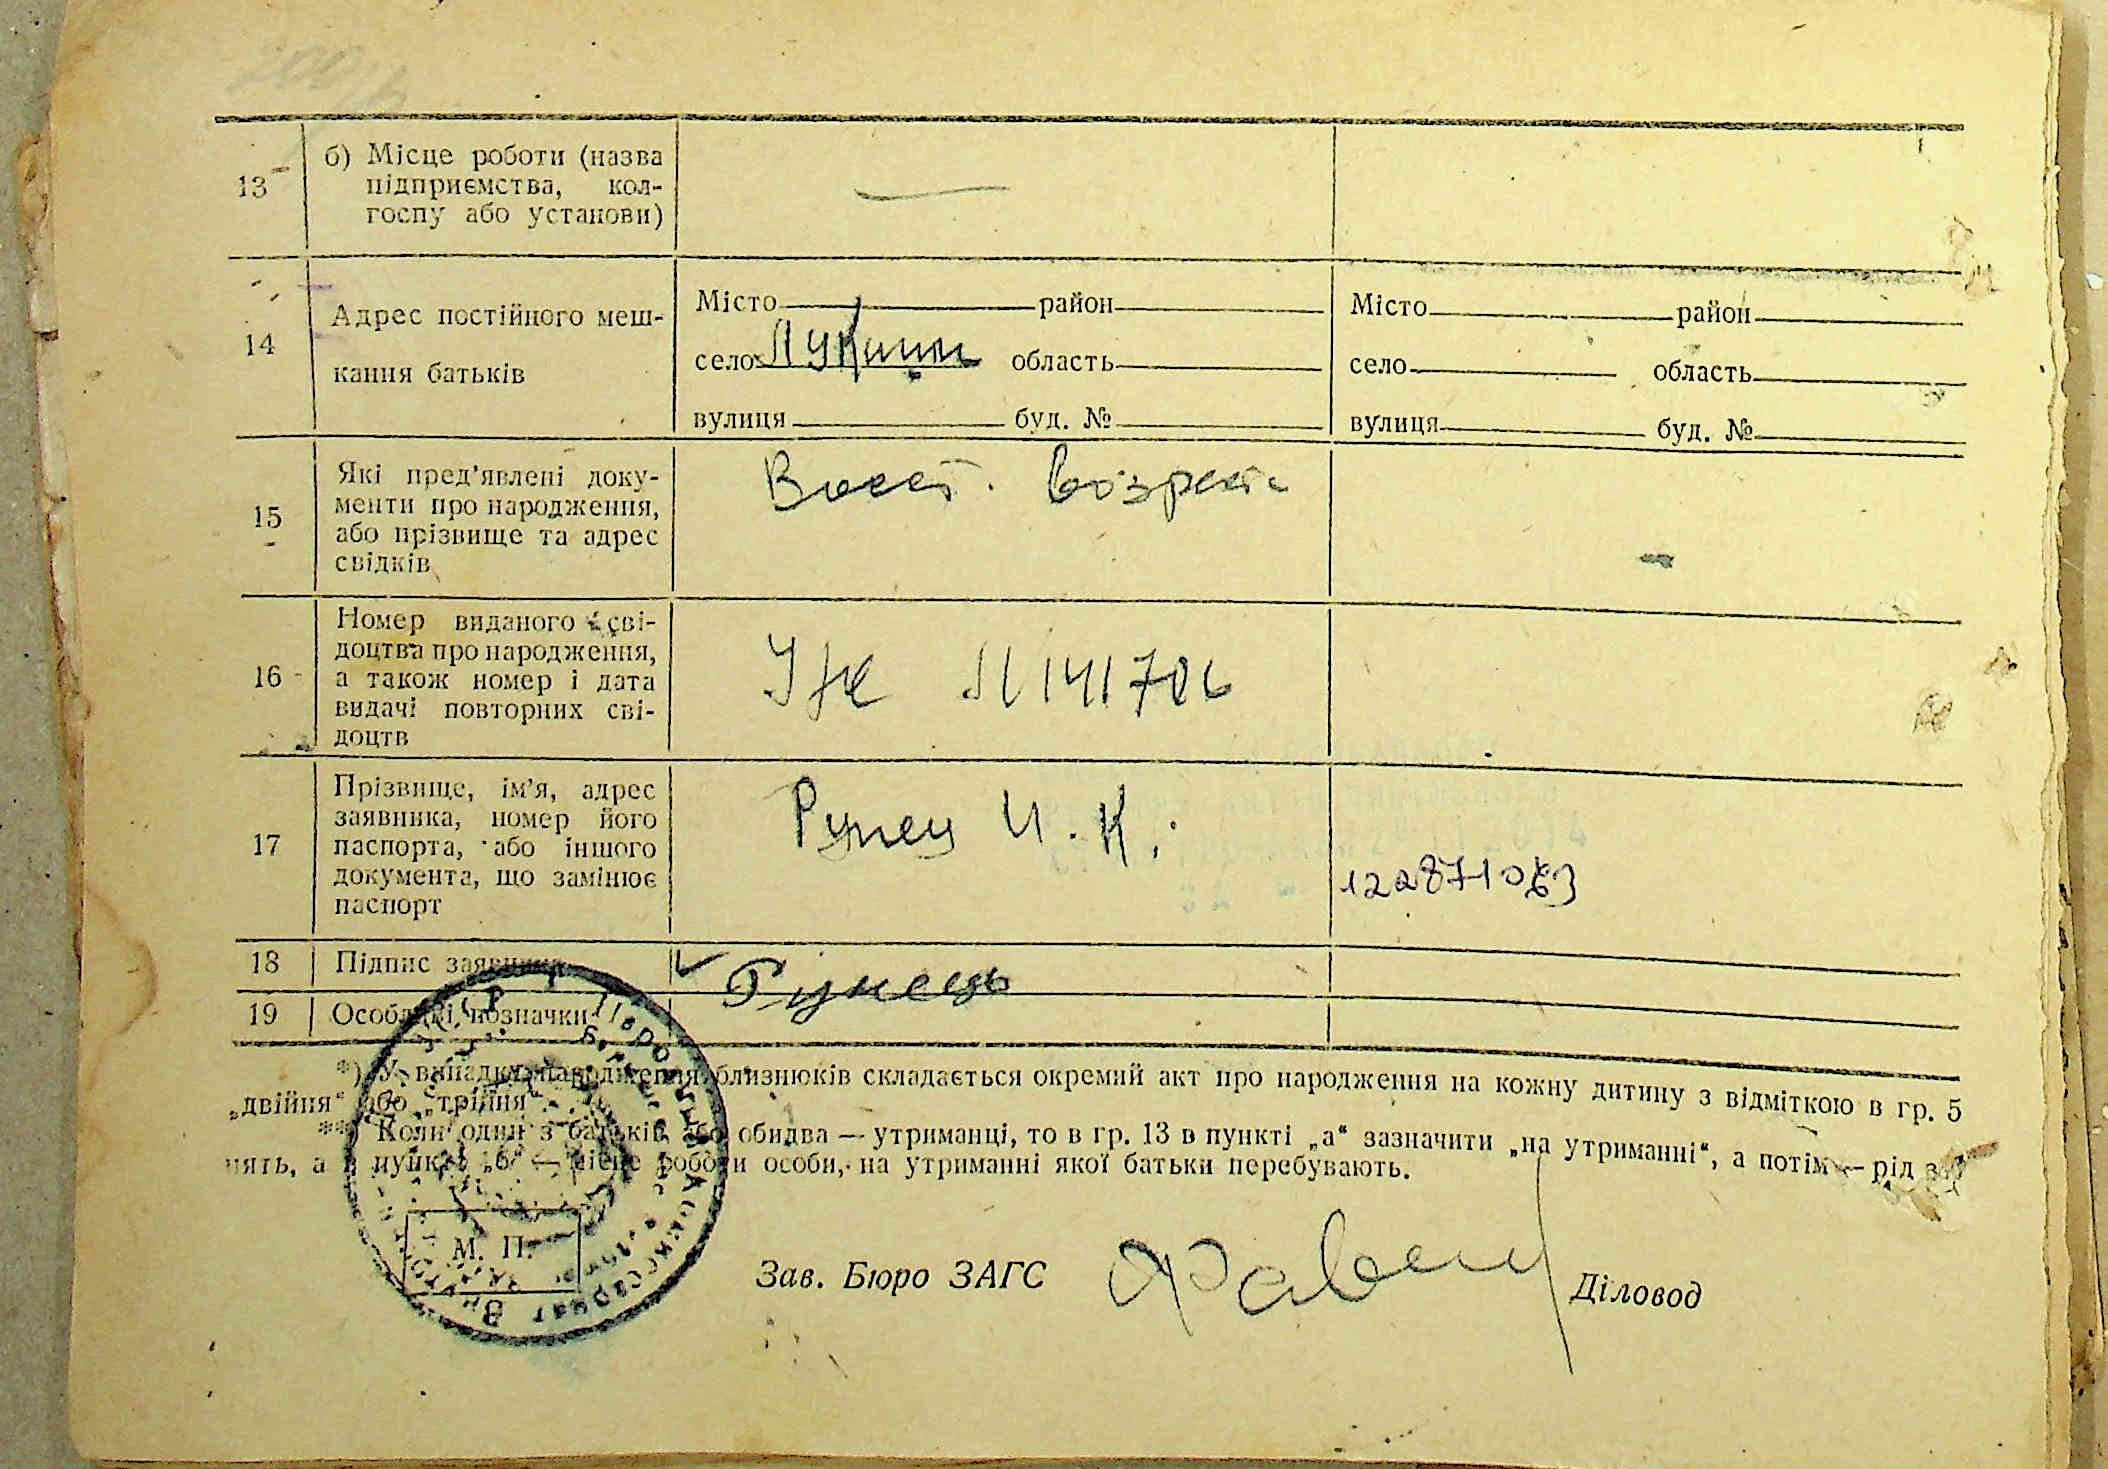 13
б) Місце роботи (назва
підприємства, кол-
госпу або установи)
14
Адрес постійного меш-
кання батьків
Місто район
село область
вулиця буд. №
Місто район
село область
вулиця буд. №
15
Які пред’явлені доку-
менти про народження,
або прізвище та адрес
свідків
Восст. возраста
16
Номер виданого сві-
доцтва про народження,
а також номер і дата
видачі повторних сві-
доцтв
УЖ №141706
17
Прізвище, ім’я, адрес
заявника, номер його
паспорта, або іншого
документа, що замінює
паспорт
Рупец И. К.
18
Підпис заявника
19
Особливі позначки
*) У випадку народження близнюків складається окремий акт про народження на кожну дитину з відміткою в гр. 5
„двійня“ або „трійня“
**) Коли один з батьків або обидва — утриманці, то в гр. 13 в пункті „а“ зазначити „на утриманні“, а потім — рід за-
нять, а в пункті „б“ — місце роботи особи, на утриманні якої батьки перебувають.
М. П.
Зав. Бюро ЗАГС
Діловод